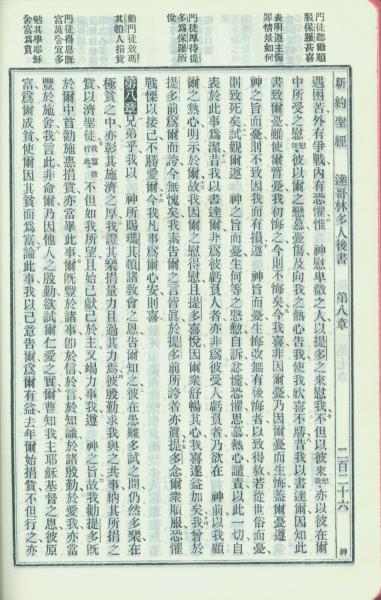 新約聖經　達哥林多人後書　第八章　二百二十六　神
門徒聽勸順服保羅甚喜
表明遵主悔罪情景如何
門徒厚待提多爲保羅所悅
勸門徒效瑪其頓人捐貲
門徒旣恩賜富萬爲宜多
勉其學耶穌富爲貧
遇困苦外有爭戰內有恐懼惟　神慰卑微之人以提多之來慰我不但以彼來亦以彼在爾
中所受之慰彼以爾之戀慕憂傷及向我之熱心告我使我欣喜不勝昔我以書達爾因知此
書致爾憂雖使爾暫憂我初悔之今則不悔矣今我喜非因爾憂乃因爾憂而生悔蓋爾憂遵
神之旨而憂則不致因我而有損　遵　神旨而憂生悔改無有後悔者以致得救若從世俗而憂
則致死矣試觀爾遵　神之旨而憂生何等之慇懃自訴忿慌恐懼思慕熱心譴責以此一切自
表於此事爲潔昔我以書達爾非爲彼虧負人者亦非爲彼受人虧負者乃欲在　神前以我顧
爾之熱心明示於爾故我因爾之慰得慰且提多喜悅因爾衆舒暢其心我喜遂益加矣我曾於
提多前以爾而誇今無愧矣我素告爾之言皆眞於提多前所誇者亦眞提多念爾衆順服恐懼
戰慄以接己不勝愛爾今我凡事爲爾心安則喜
第八章兄弟乎我以　神所賜瑪其頓諸敎會之恩告爾知之彼在患難多試之間仍然多樂在
極貧之中亦彰其施濟之厚我證其樂捐量力且過其力焉彼殷勤求我與之共事納其所捐之
貲以濟聖徒不但如我所望且始已獻己於主又竭力事我遵　神之旨故我勸提多旣
於爾中首勸施惠捐貲亦當畢此事爾旣豐於諸事卽於信於言於知識於諸殷勤於愛我亦當
豐於施舍我言此非命爾乃因他人之殷勤欲試爾仁愛之實爾曹知我主耶穌基督之恩彼原
富爲爾成貧使爾因其貧而爲富論此事我以己意告爾爲爾有益去年爾始捐貲不但行之亦